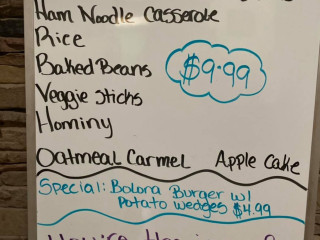 Ham Noodle Casserole
Rice
Baked Beans
$9.99
Veggie Sticks
Hominy
Oatmeal Carmel Apple Cake
Special: Bolona Burger w/
Potato wedges $4.99